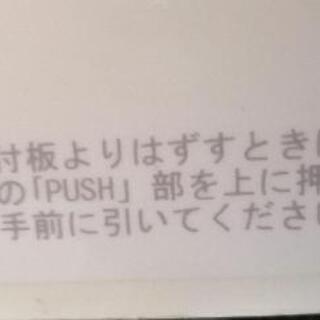 付板よりはずすとき
の「PUSH」部を上に押
手前に引いてくださ